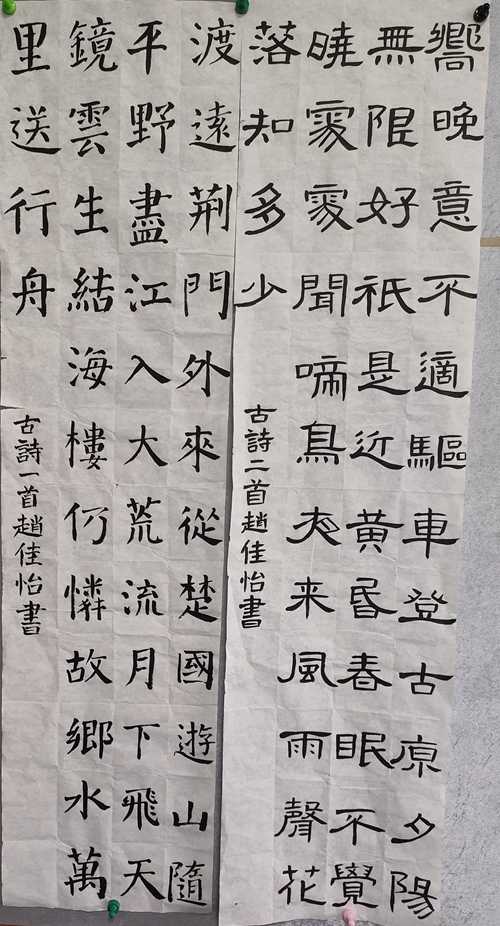 嚮晚意不適驅車登古原夕陽
無限好祇是近黃昏春眠不覺
曉處處聞啼鳥夜来風雨聲花
落知多少
古詩二首趙佳怡書
渡遠荆門外來從楚國遊山隨
平野盡江入大荒流月下飛天
鏡雲生結海樓仍憐故鄉水萬
里送行舟
古詩一首趙佳怡書